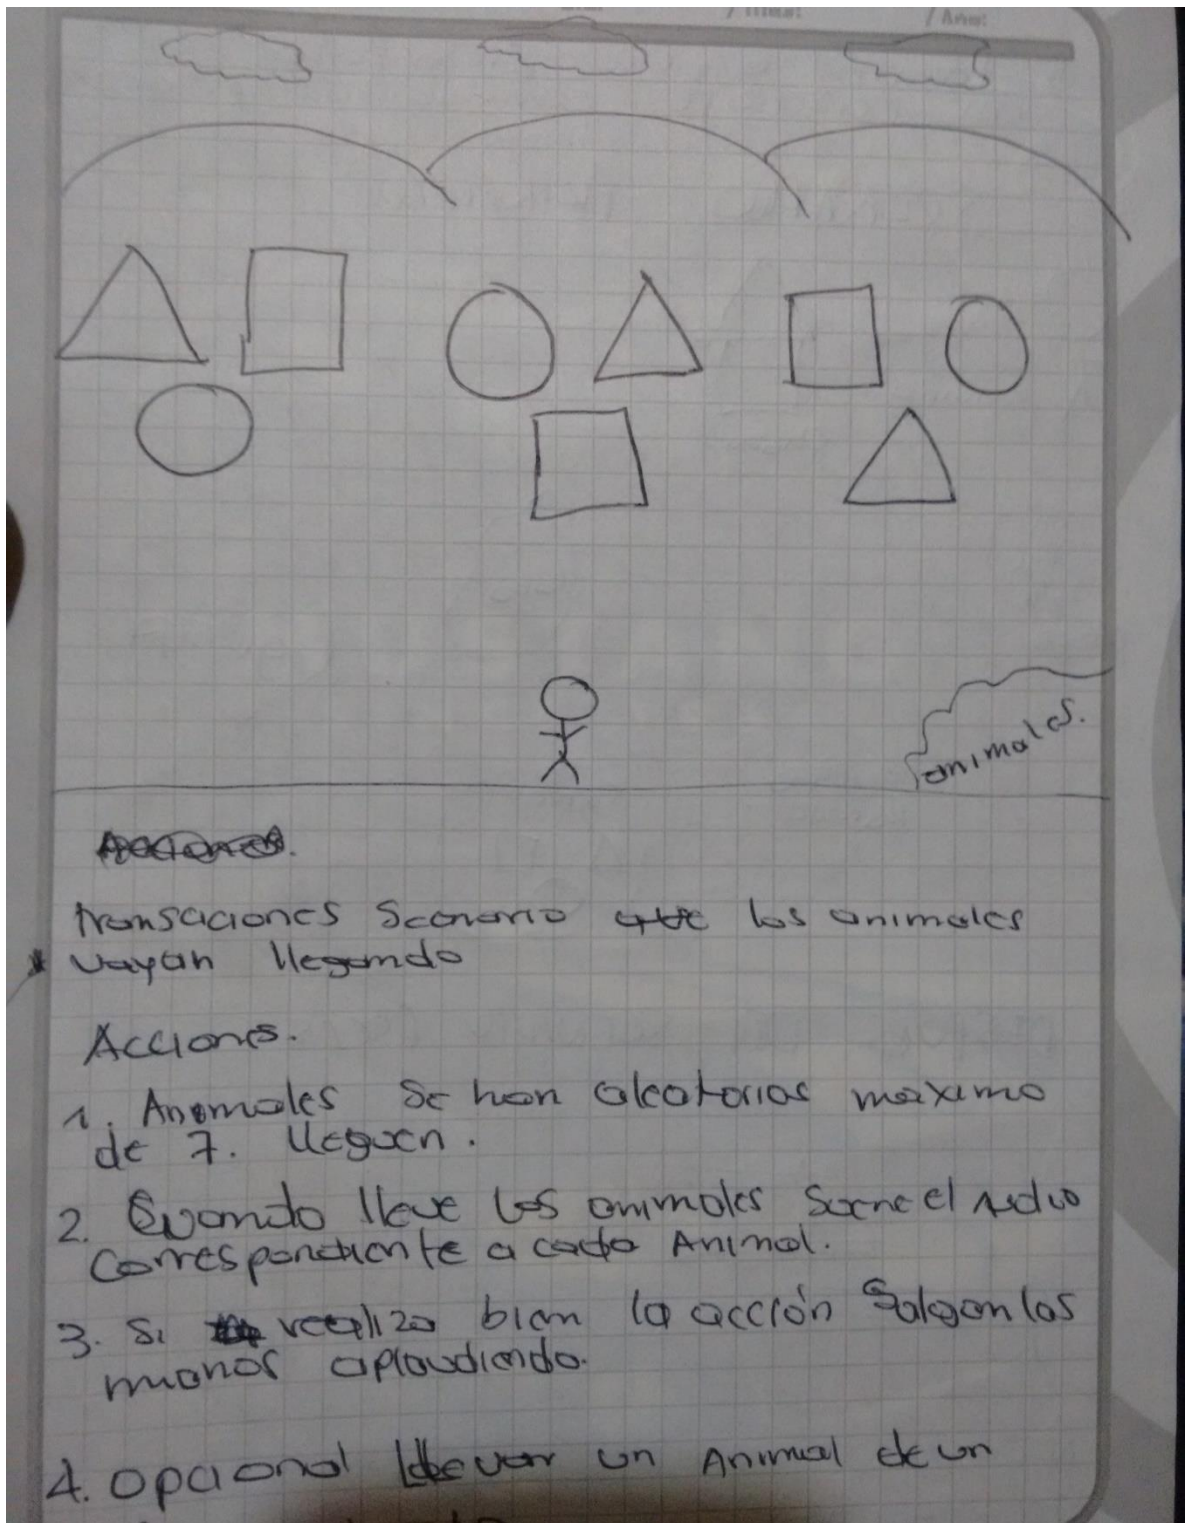 / Año:
animales.
Acciones.
transaciones Scenario que los animales
vayan llegando
Acciones.
1. Animales Se han aleatorios maximo
de 7. lleguen.
2. Cuando lleve los animales Suene el audio
correspondiente a cada Animal.
3. Si realizo bien la acción Salgan las
manos aplaudiendo.
4. opcional llevar un Animal de un